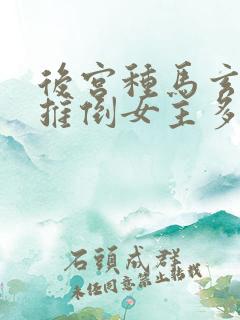 後宮種馬玄
推倒女主多
石頭成群
未經同意禁止轉載